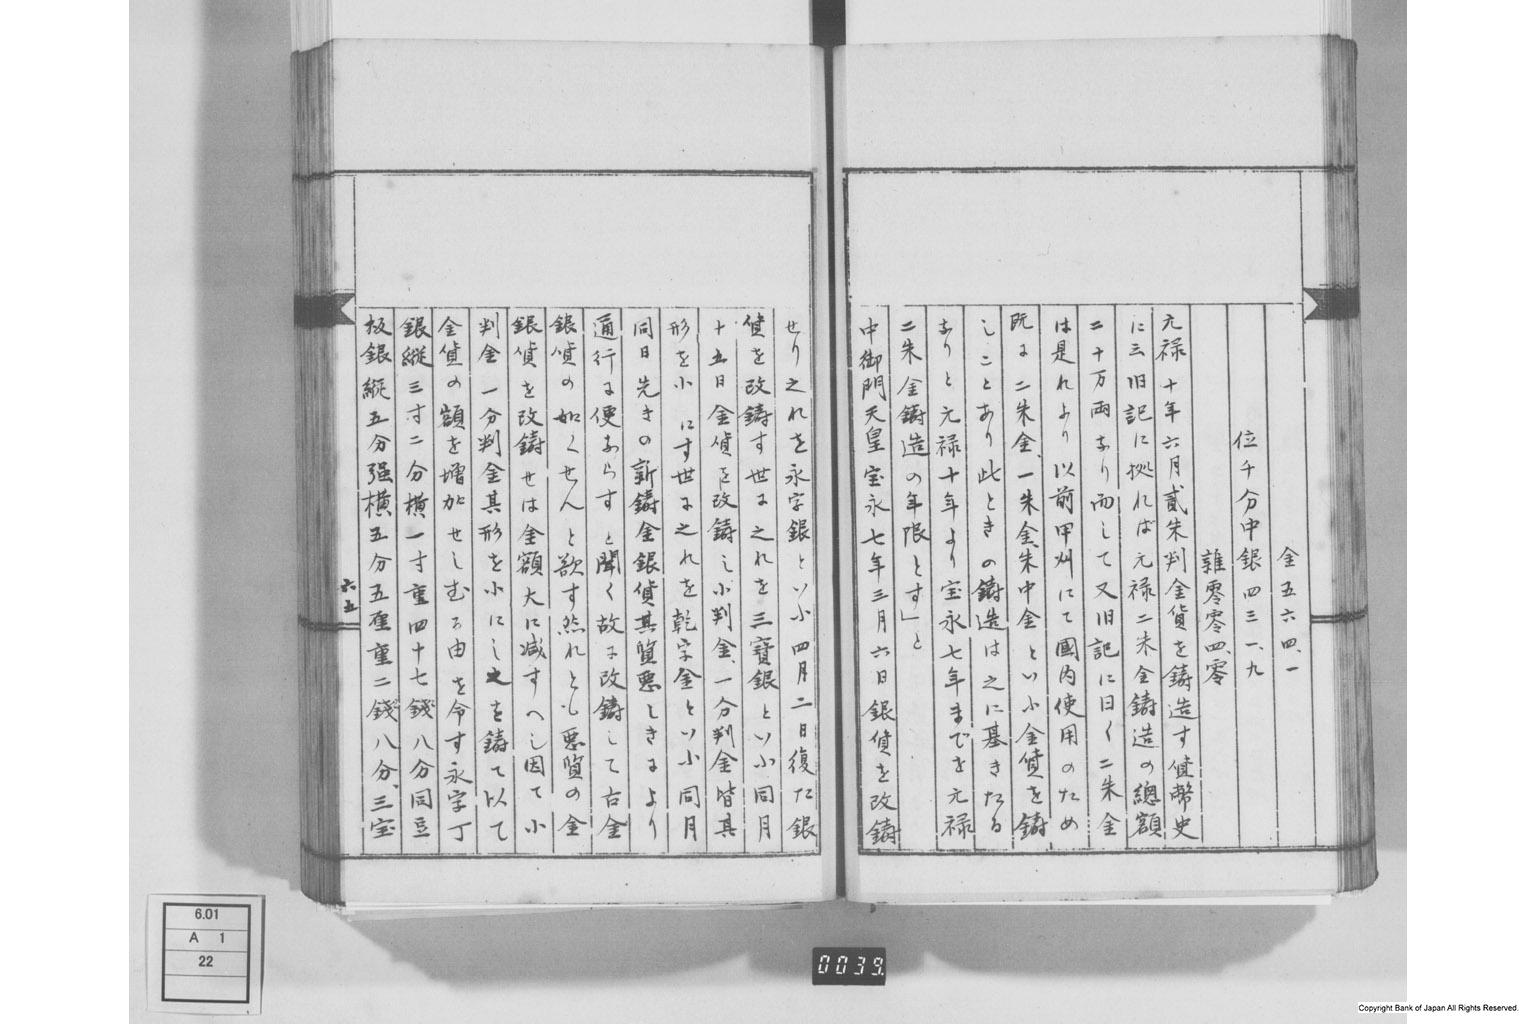 金五六四、一
位千分中銀四三一、九
雜零零四、零
元禄十年六月貳朱判金貨を鋳造す貨幣史
に云旧記に拠れば元禄二朱金鋳造の總額
二十万両なり而して又旧記に曰く二朱金
は是れより以前甲州にて國内使用のため
既に二朱金、一朱金、朱中金といふ金貨を鋳
しことあり此ときの鋳造は之に基きたる
なりと元禄十年より宝永七年までを元禄
二朱金鋳造の年限とす」と
中御門天皇宝永七年三月六日銀貨を改鋳
せり之れを永字銀といふ四月二日復た銀
貨を改鋳す世に之れを三寶銀といふ同月
十五日金貨を改鋳し小判金、一分判金皆其
形を小にす世に之れを乾字金といふ同月
同日先きの新鋳金銀貨其質悪しきにより
通行に便ならすと聞く故に改鋳して古金
銀貨の如くせんと欲す然れとも悪質の金
銀貨を改鋳せは金額大に減すへし因て小
判金一分判金其形を小にし之を鋳て以て
金貨の額を増加せしむる由を令す永字丁
銀縦三寸二分横一寸重四十七錢八分同豆
板銀縦五分强横五分五厘重二錢八分、三宝
六五
6.01
A 1
22
0039.
Copyright Bank of Japan All Rights Reserved.